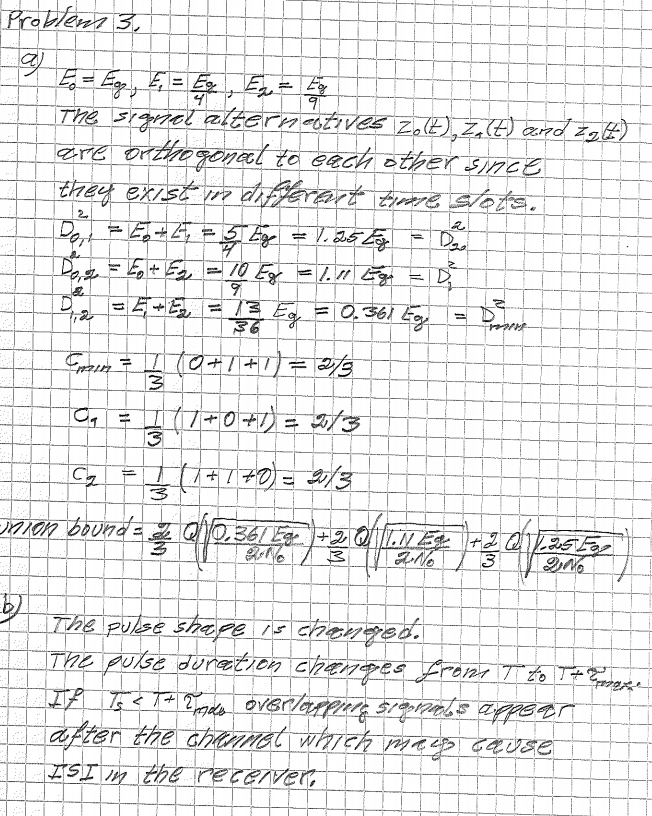 Problem 3.
a)
E₀ = Eg, E₁ = Eg/4, E₂ = Eg/9
The signal alternatives z₀(t), z₁(t) and z₂(t)
are orthogonal to each other since
they exist in different time slots.
D²₀,₁ = E₀ + E₁ = 5/4 Eg = 1.25 Eg = D²₂
D²₀,₂ = E₀ + E₂ = 10/9 Eg = 1.11 Eg = D²₁
D²₁,₂ = E₁ + E₂ = 13/36 Eg = 0.361 Eg = D²min
Cmin = 1/3 (0+1+1) = 2/3
C₁ = 1/3 (1+0+1) = 2/3
C₂ = 1/3 (1+1+0) = 2/3
union bound = 2/3 Q(√(0.361 Eg/2N₀)) + 2/3 Q(√(1.11 Eg/2N₀)) + 2/3 Q(√(1.25 Eg/2N₀))
b)
The pulse shape is changed.
The pulse duration changes from T to T+τmax.
If Ts < T+τmax overlapping signals appear
after the channel which may cause
ISI in the receiver.